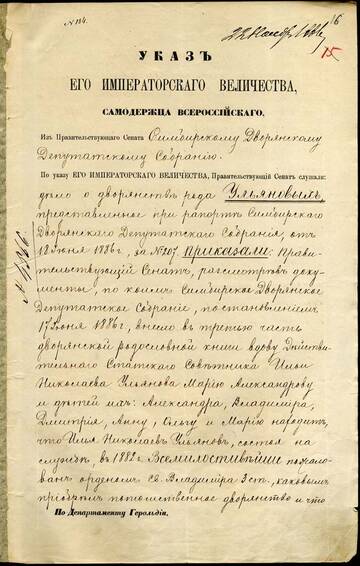 № 114.
16
15
УКАЗЪ
ЕГО ИМПЕРАТОРСКАГО ВЕЛИЧЕСТВА,
САМОДЕРЖЦА ВСЕРОССІЙСКАГО,
Изъ Правительствующаго Сената Симбирскому Дворянскому
Депутатскому Собранію.
По указу ЕГО ИМПЕРАТОРСКАГО ВЕЛИЧЕСТВА, Правительствующій Сенатъ слушали:
дѣло о дворянствѣ рода Ульяновыхъ,
представленное при рапортѣ Симбирскаго
Дворянскаго Депутатскаго Собранія, отъ
18 Іюня 1886 г., за № 207. Приказали: Прави-
тельствующій Сенатъ, разсмотрѣвъ доку-
менты, по коимъ Симбирское Дворянское
Депутатское Собраніе, постановленіемъ
17 Іюня 1886 г., внесло въ третью часть
дворянской родословной книги вдову Дѣйстви-
тельнаго Статскаго Совѣтника Ильи
Николаева Ульянова Марію Александрову
и дѣтей ихъ: Александра, Владиміра,
Дмитрія, Анну, Ольгу и Марію находитъ,
что Илья Николаевъ Ульяновъ, состоя на
службѣ, въ 1882 г. Всемилостивѣйше пожало-
ванъ орденомъ Св. Владиміра 3 ст., каковымъ
пріобрѣлъ потомственное дворянство и что
По Департаменту Герольдіи.